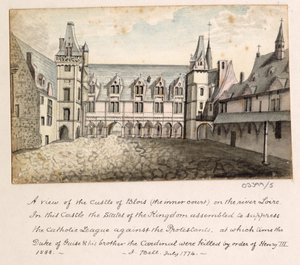 A view of the Castle of Blois (the inner court) on the river Loire.
In this Castle the States of the Kingdom assembled to suppress
the Catholic League against the Protestants, at which time the
Duke of Guise & his brother the Cardinal were killed by order of Henry III.
1588. — J. Bell. July 1774. —